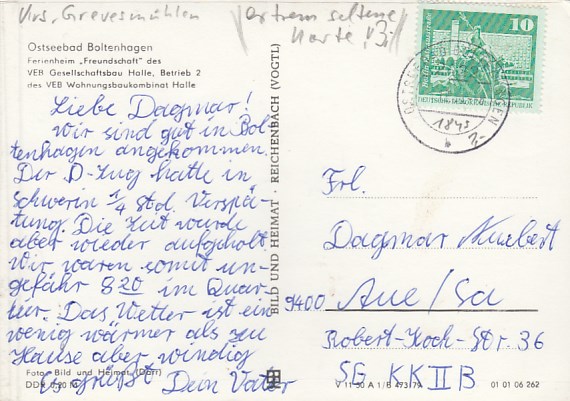 Krs. Grevesmühlen
extrem seltene
Karte!
Ostseebad Boltenhagen
Ferienheim „Freundschaft" des
VEB Gesellschaftsbau Halle, Betrieb 2
des VEB Wohnungsbaukombinat Halle
Liebe Dagmar!
Wir sind gut in Bol-
tenhagen angekommen.
Der D-Zug hatte in
Schwerin 1/4 Std. Verspä-
tung. Die Zeit wurde
aber wieder aufgeholt.
Wir waren somit un-
gefähr 8 20 im Quar-
tier. Das Wetter ist ein
wenig wärmer als zu
Hause aber windig
Es grüßt Dein Vater
Foto: Bild und Heimat (Darr)
DDR 0,20 M
BILD UND HEIMAT · REICHENBACH (VOGTL)
10
DEUTSCHE DEMOKRATISCHE REPUBLIK
OSTSEEBAD BOLTENHAGEN
b
Frl.
Dagmar
9400 Aue/Sa
Robert-Koch-Str. 36
SG KK II B
V 11 50 A 1/B 473/79 01 01 06 262